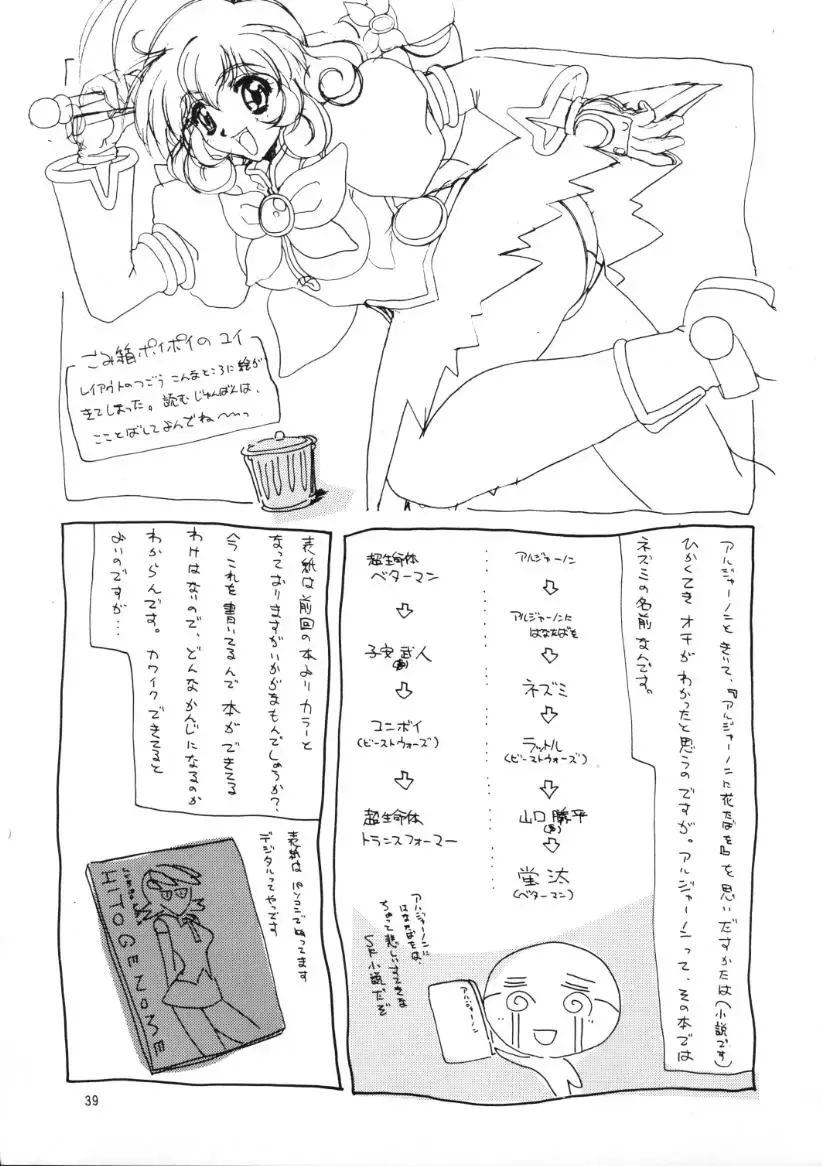 ごみ箱ポイポイのユイ
レイアウトのつごう こんなところに絵が
きてしまった。読むじゅんばんは、
こことばしてよんでね〜っ
アルジャーノンときいて、『アルジャーノンに花たばを』を思いだすかたは(小説です)
ひかくてき オチが わかったと思うのですが。アルジャーノンって、その本では
ネズミの名前なんです。
アルジャーノン
⇩
アルジャーノンに
はなたばを
⇩
ネズミ
⇩
ラットル
(ビーストウォーズ)
⇩
山口 勝平
⇩
蛍汰
(ベターマン)
超生命体
ベターマン
⇩
子安 武人
⇩
コンボイ
(ビーストウォーズ)
⇩
超生命体
トランスフォーマー
アルジャーノンに
はなたばをは、
ちょって悲しいすてきな
SF小説だぞ
アルジャーノン
表紙は前回の本よりカラーと
なっておりますがいかがなもんでしょうか?
今これを書いてるんで本ができてる
わけはないので、どんなかんじになるのか
わからんです。カワイクできてると
よいのですが…
表紙はパソコンでぬってます
デジタルってやつです
HITOGENOME
39